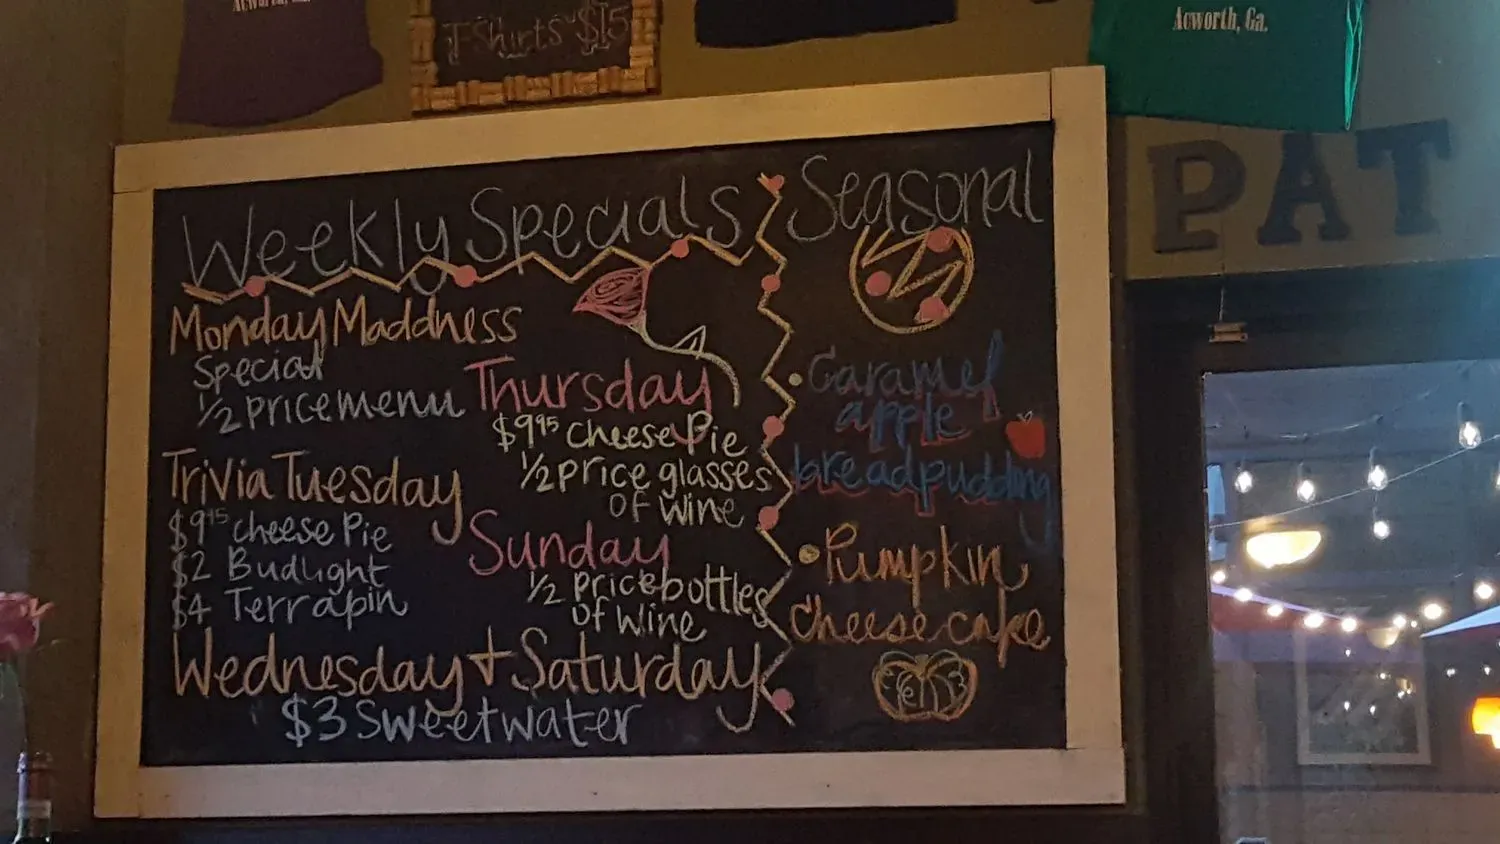 Acworth, Ga.
T-Shirts $15
Acworth, Ga.
PAT
Weekly Specials
Monday Maddness
Special
1/2 price menu
Trivia Tuesday
$9.95 cheese Pie
$2 Budlight
$4 Terrapin
Thursday
$9.95 cheese Pie
1/2 price glasses
of wine
Sunday
1/2 price bottles
of wine
Wednesday + Saturday
$3 Sweetwater
Seasonal
• Caramel
apple
bread pudding
• Pumpkin
cheesecake